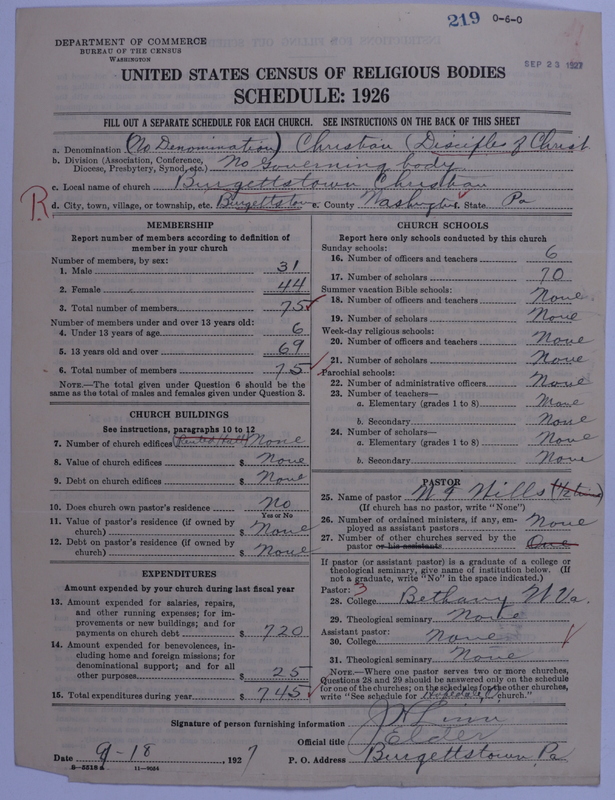 219 0-6-0
DEPARTMENT OF COMMERCE
BUREAU OF THE CENSUS
WASHINGTON
SEP 23 1927
UNITED STATES CENSUS OF RELIGIOUS BODIES
SCHEDULE: 1926
FILL OUT A SEPARATE SCHEDULE FOR EACH CHURCH. SEE INSTRUCTIONS ON THE BACK OF THIS SHEET
a. Denomination (No Denomination) Christian (Disciples of Christ
b. Division (Association, Conference, Diocese, Presbytery, Synod, etc.) No Governing body
c. Local name of church Burgettstown Christian
R d. City, town, village, or township, etc. Burgettstown e. County Washington f. State Pa
MEMBERSHIP
Report number of members according to definition of
member in your church
Number of members, by sex:
1. Male 31
2. Female 44
3. Total number of members 75
Number of members under and over 13 years old:
4. Under 13 years of age 6
5. 13 years old and over 69
6. Total number of members 75
NOTE.—The total given under Question 6 should be the
same as the total of males and females given under Question 3.
CHURCH BUILDINGS
See instructions, paragraphs 10 to 12
7. Number of church edifices (Rented Hall) None
8. Value of church edifices $ None
9. Debt on church edifices $ None
10. Does church own pastor's residence No
Yes or No
11. Value of pastor's residence (if owned by
church) $ None
12. Debt on pastor's residence (if owned by
church) $ None
EXPENDITURES
Amount expended by your church during last fiscal year
13. Amount expended for salaries, repairs,
and other running expenses; for im-
provements or new buildings; and for
payments on church debt $ 720
14. Amount expended for benevolences, in-
cluding home and foreign missions; for
denominational support; and for all
other purposes $ 25
15. Total expenditures during year $ 745
CHURCH SCHOOLS
Report here only schools conducted by this church
Sunday schools:
16. Number of officers and teachers 6
17. Number of scholars 70
Summer vacation Bible schools:
18. Number of officers and teachers None
19. Number of scholars None
Week-day religious schools:
20. Number of officers and teachers None
21. Number of scholars None
Parochial schools:
22. Number of administrative officers None
23. Number of teachers—
a. Elementary (grades 1 to 8) None
b. Secondary None
24. Number of scholars—
a. Elementary (grades 1 to 8) None
b. Secondary None
PASTOR
25. Name of pastor Hills
(If church has no pastor, write "None")
26. Number of ordained ministers, if any, em-
ployed as assistant pastors None
27. Number of other churches served by the
pastor or his assistants One
If pastor (or assistant pastor) is a graduate of a college or
theological seminary, give name of institution below. (If
not a graduate, write "No" in the space indicated.)
Pastor: 3
28. College Bethany W Va.
29. Theological seminary None
Assistant pastor:
30. College None
31. Theological seminary None
NOTE.—Where one pastor serves two or more churches,
Questions 28 and 29 should be answered only on the schedule
for one of the churches; on the schedules for the other churches,
write "See schedule for church."
Signature of person furnishing information J W Linn
Official title Elder
Date 9-18, 1927 P. O. Address Burgettstown, Pa
8-5518a 11-9054